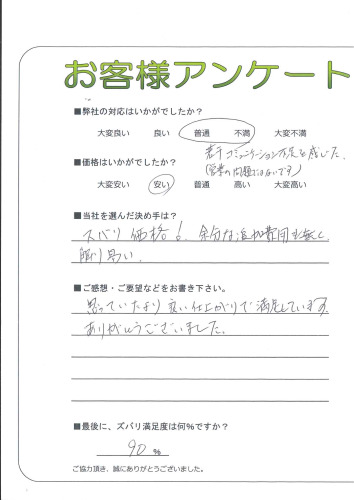 お客様アンケート
■弊社の対応はいかがでしたか？
大変良い 良い 普通 不満 大変不満
若干コミュニケーション不足を感じた。
(営業の問題ではないです)
■価格はいかがでしたか？
大変安い 安い 普通 高い 大変高い
■当社を選んだ決め手は？
ズバリ価格！余分な追加費用も無く、
■ご感想・ご要望などをお書き下さい。
思っていたより良い仕上がりで満足しています。
ありがとうございました。
■最後に、ズバリ満足度は何％ですか？
90 ％
ご協力頂き、誠にありがとうございました。